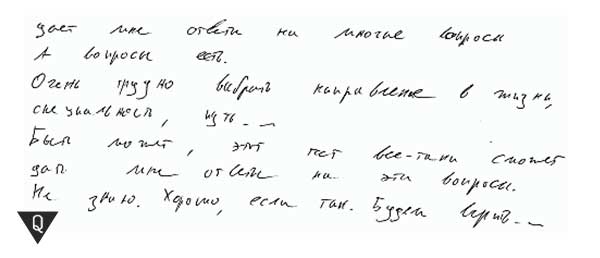 дает мне ответы на многие вопросы
А вопросы есть.
Очень трудно выбрать направление в жизни,
специальность, путь...
Быть может, этот тест все-таки сможет
дать мне ответы на эти вопросы.
Не знаю. Хорошо, если так. Будем верить...
Q